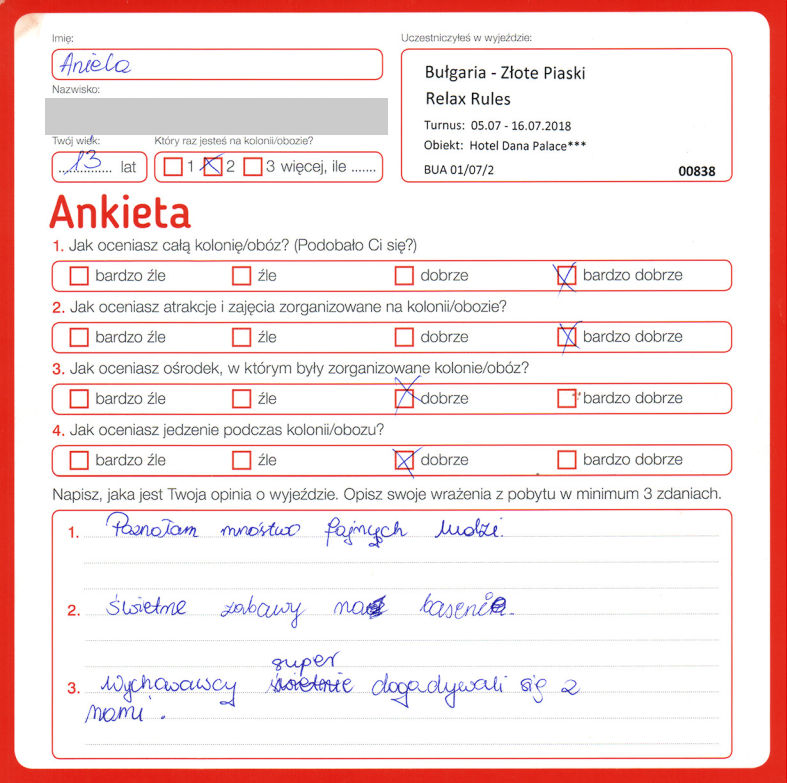 Imię:
Uczestniczyłeś w wyjeździe:
Aniela
Bułgaria - Złote Piaski
Nazwisko:
Relax Rules
Turnus: 05.07 - 16.07.2018
Twój wiek:
Który raz jesteś na kolonii/obozie?
Obiekt: Hotel Dana Palace***
13 lat
1 2 3 więcej, ile .......
BUA 01/07/2 00838
Ankieta
1. Jak oceniasz całą kolonię/obóz? (Podobało Ci się?)
bardzo źle źle dobrze bardzo dobrze
2. Jak oceniasz atrakcje i zajęcia zorganizowane na kolonii/obozie?
bardzo źle źle dobrze bardzo dobrze
3. Jak oceniasz ośrodek, w którym były zorganizowane kolonie/obóz?
bardzo źle źle dobrze bardzo dobrze
4. Jak oceniasz jedzenie podczas kolonii/obozu?
bardzo źle źle dobrze bardzo dobrze
Napisz, jaka jest Twoja opinia o wyjeździe. Opisz swoje wrażenia z pobytu w minimum 3 zdaniach.
1. Poznałam mnóstwo fajnych ludzi.
2. świetne zabawy na basenie.
super
3. Wychowawcy świetnie dogadywali się z
nami.